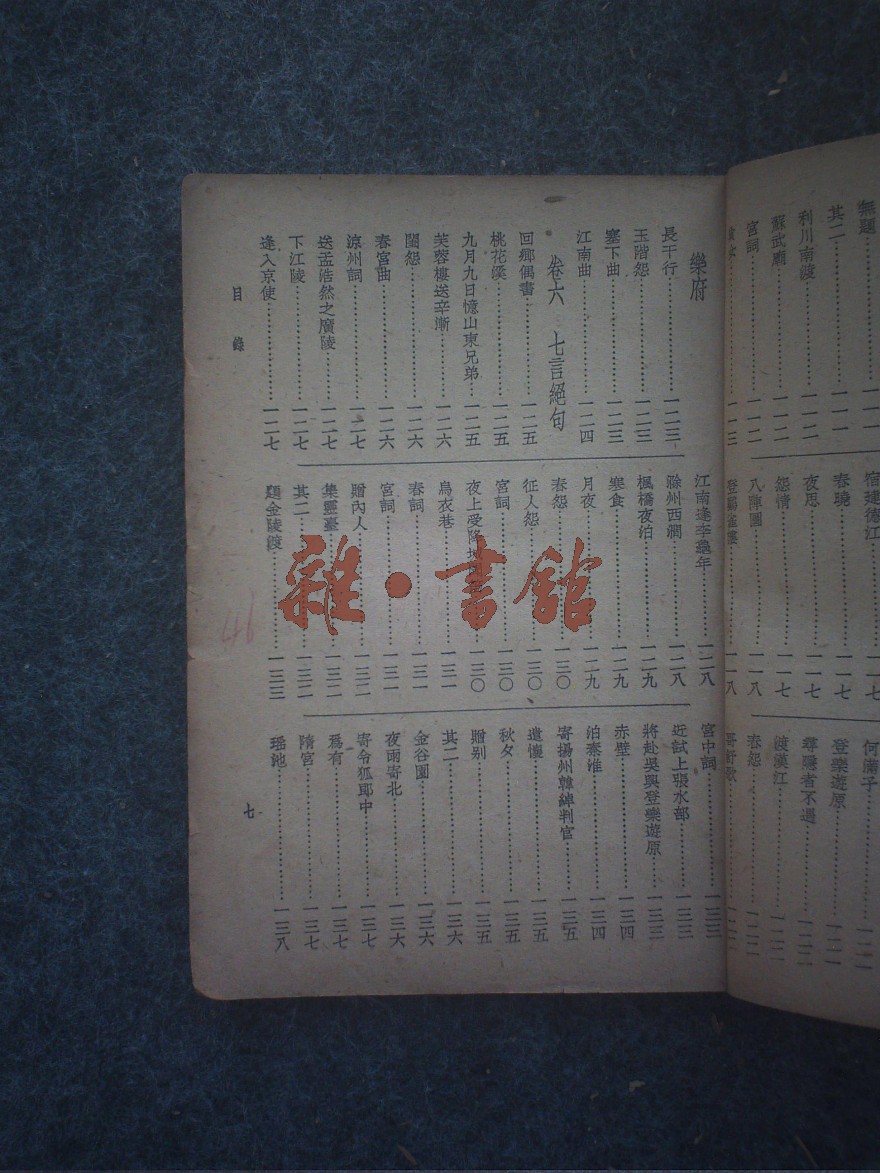 無題……一一一
其二……一一一
利川南渡……一一一
蘇武廟……一一二
宮詞……一一二
一一三
宿建德江……一一七
春曉……一一七
夜思……一一七
怨情……一一七
八陣圖……一一八
登鸛雀樓……一一八
何滿子……一二一
登樂遊原……一二一
尋隱者不遇……一二二
渡漢江……一二二
春怨……一二二
哥舒歌……一二二
樂府
長干行……一二三
玉階怨……一二三
塞下曲……一二三
江南曲……一二四
卷六 七言絕句
回鄉偶書……一二五
桃花溪……一二五
九月九日憶山東兄弟……一二五
芙蓉樓送辛漸……一二六
閨怨……一二六
春宮曲……一二六
涼州詞……一二七
送孟浩然之廣陵……一二七
下江陵……一二七
逢入京使……一二七
江南逢李龜年……一二八
滁州西澗……一二八
楓橋夜泊……一二九
寒食……一二九
月夜……一二九
春怨……一三〇
征人怨……一三〇
宮詞……一三〇
夜上受降城……一三〇
烏衣巷……一三一
春詞……一三一
宮詞……一三一
贈內人……一三二
集靈臺……一三二
其二……一三二
題金陵渡……一三三
宮中詞……一三三
近試上張水部……一三三
將赴吳興登樂遊原……一三三
赤壁……一三四
泊秦淮……一三四
寄揚州韓綽判官……一三五
遣懷……一三五
秋夕……一三五
贈別……一三五
其二……一三六
金谷園……一三六
夜雨寄北……一三六
寄令狐郎中……一三七
爲有……一三七
隋宮……一三七
瑤池……一三八
目錄
七
雜·書館